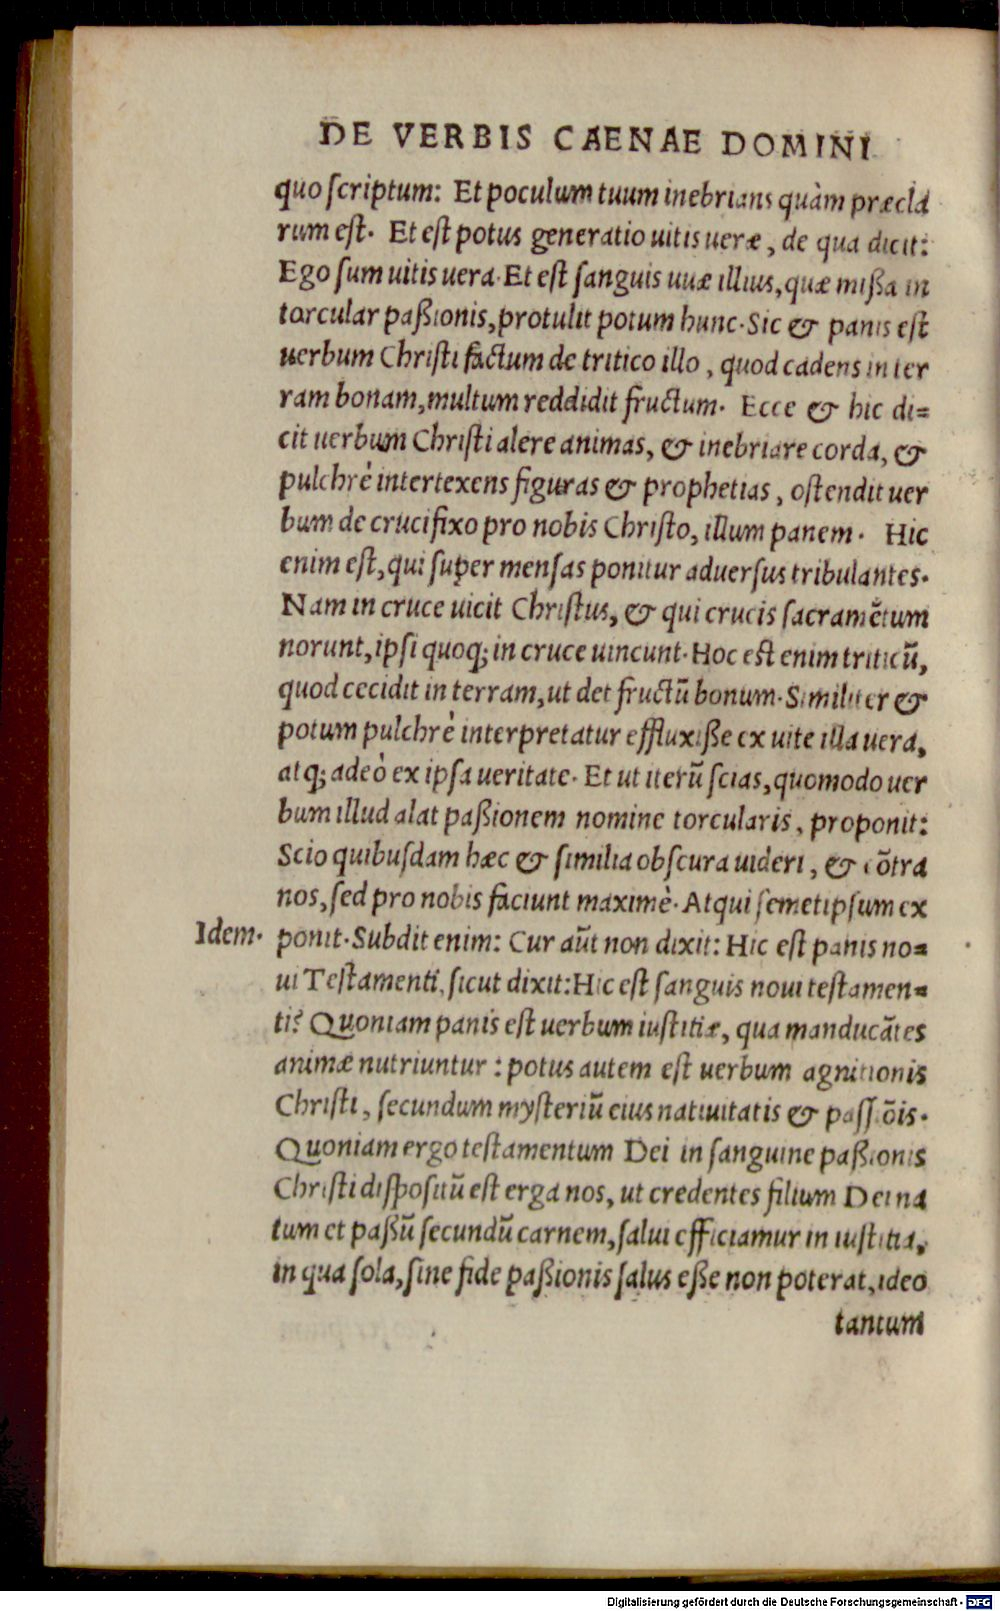 DE VERBIS CAENAE DOMINI
quo ſcriptum: Et poculum tuum inebrians quàm præcla
rum eſt. Et eſt potus generatio uitis ueræ, de qua dicit:
Ego ſum uitis uera. Et eſt ſanguis uuæ illius, quæ mißa in
torcular paßionis, protulit potum hunc. Sic & panis eſt
uerbum Chriſti factum de tritico illo, quod cadens in ter
ram bonam, multum reddidit fructum. Ecce & hic di=
cit uerbum Chriſti alere animas, & inebriare corda, &
pulchrè intertexens figuras & prophetias, oſtendit uer
bum de crucifixo pro nobis Chriſto, illum panem. Hic
enim eſt, qui ſuper menſas ponitur aduerſus tribulantes.
Nam in cruce uicit Chriſtus, & qui crucis ſacramẽtum
norunt, ipſi quoq; in cruce uincunt. Hoc eſt enim triticũ,
quod cecidit in terram, ut det fructũ bonum. Similiter &
potum pulchrè interpretatur effluxiße ex uite illa uera,
atq; adeò ex ipſa ueritate. Et ut iterũ ſcias, quomodo uer
bum illud alat paßionem nomine torcularis, proponit:
Scio quibuſdam hæc & ſimilia obſcura uideri, & cõtra
nos, ſed pro nobis faciunt maximè. Atqui ſemetipſum ex
Idem. ponit. Subdit enim: Cur aũt non dixit: Hic eſt panis no=
ui Teſtamenti, ſicut dixit: Hic eſt ſanguis noui teſtamen=
ti? Quoniam panis eſt uerbum iuſtitiæ, qua manducãtes
animæ nutriuntur: potus autem eſt uerbum agnitionis
Chriſti, ſecundum myſteriũ eius natiuitatis & paſſiõis.
Quoniam ergo teſtamentum Dei in ſanguine paßionis
Chriſti diſpoſitũ eſt erga nos, ut credentes filium Dei na
tum et paßũ ſecundũ carnem, ſalui efficiamur in iuſtitia,
in qua ſola, ſine fide paßionis ſalus eße non poterat, ideo
tantum
Digitalisierung gefördert durch die Deutsche Forschungsgemeinschaft - DFG